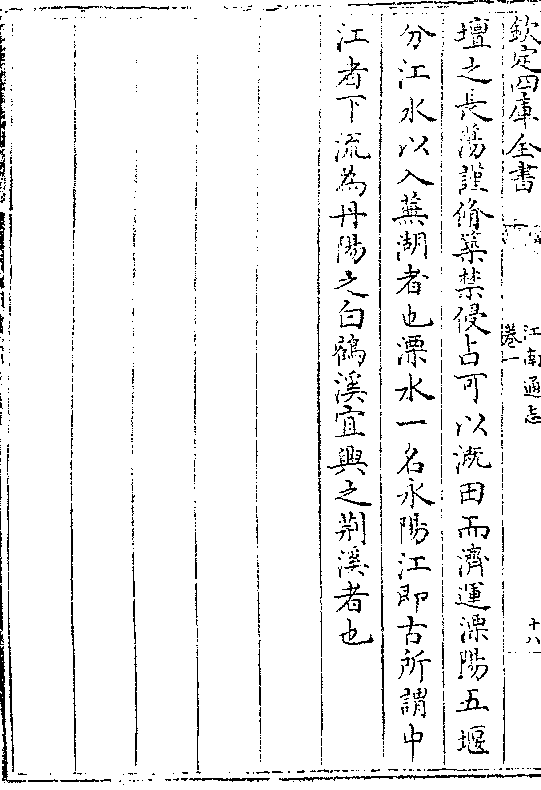 欽定四庫全書
江南通志
卷一
十八
壇之長蕩謹脩築禁侵占可以溉田而濟運溧陽五堰
分江水以入蕪湖者也溧水一名永陽江即古所謂中
江者下流為丹陽之白鶴溪宜興之荆溪者也